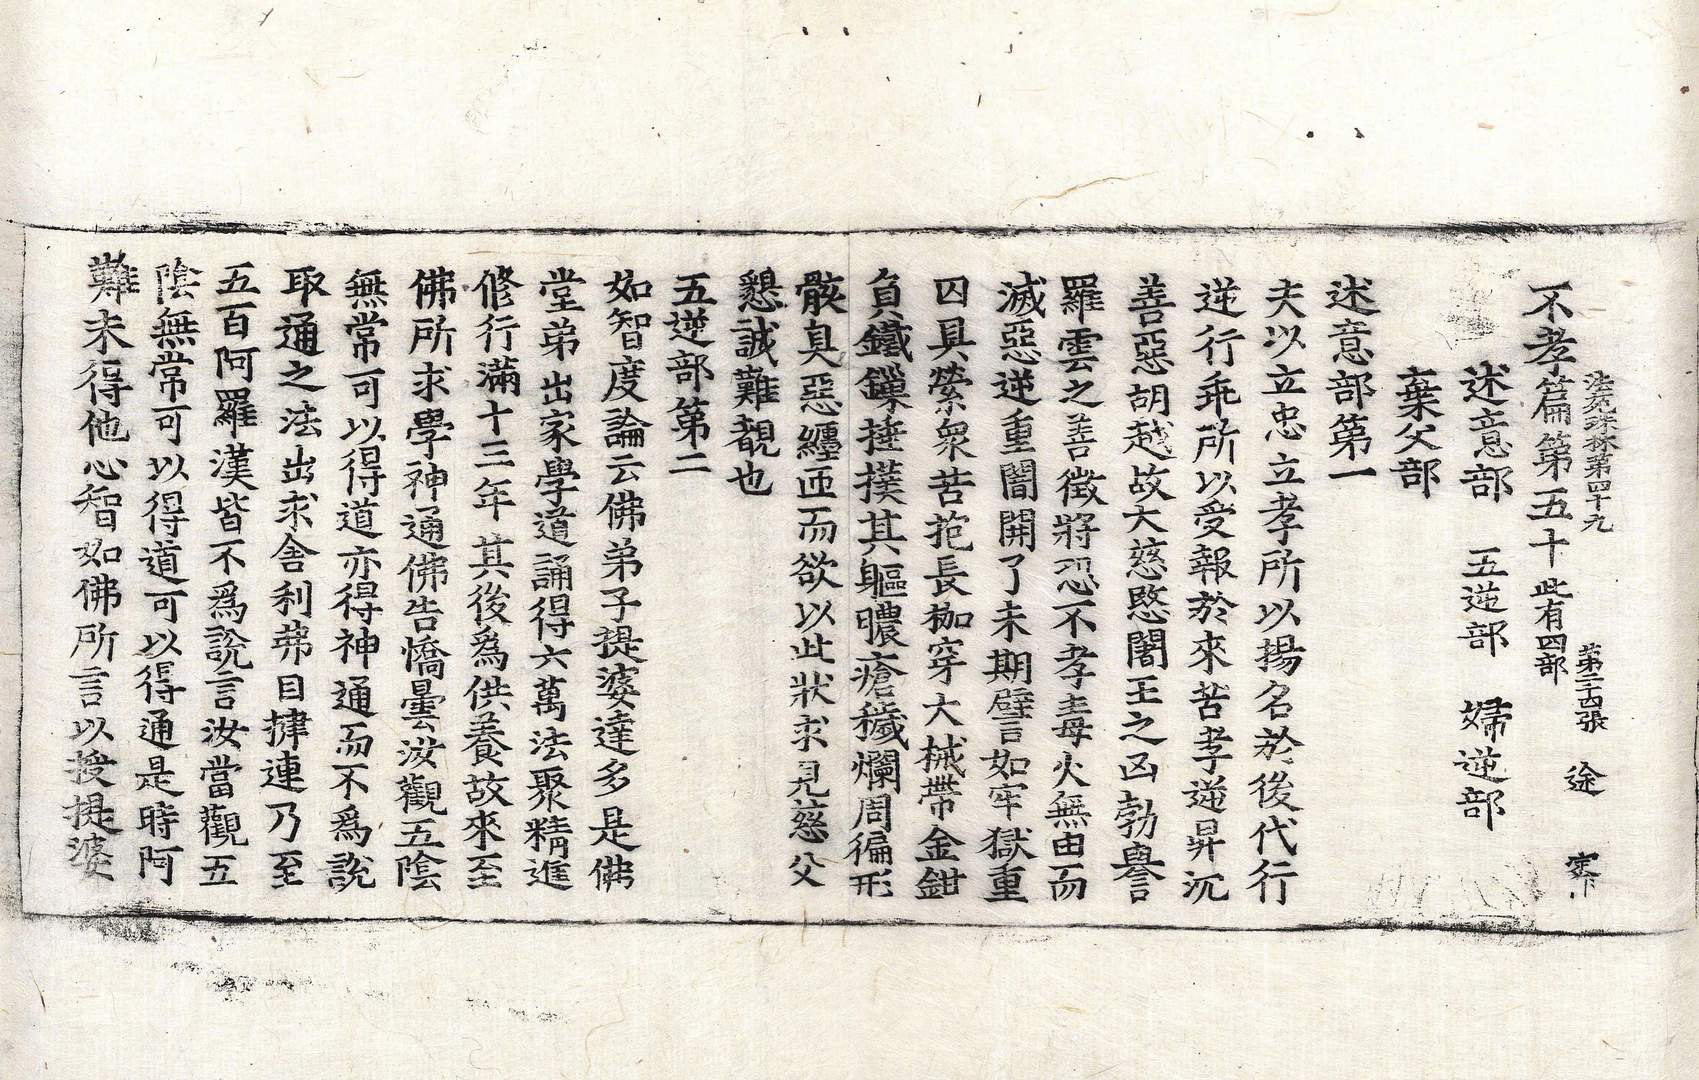 法苑珠林第四十九 第二十四張 途 寀
不孝篇第五十此有四部
述意部 五逆部 婦逆部
棄父部
述意部第一
夫以立忠立孝所以揚名於後代行
逆行乖所以受報於來苦孝逆昇沉
善惡胡越故大慈愍闍王之凶勃譽
羅雲之善徵將恐不孝毒火無由而
滅惡逆重闇開了未期譬言如牢獄重
囚具縈衆苦抱長枷穿大械帶金鉗
負鐵鏁捶撲其軀膿瘡穢爛周徧形
骸臭惡纏匝而欲以此狀求見慈父
懇誠難覩也
五逆部第二
如智度論云佛弟子提婆達多是佛
堂弟出家學道誦得六萬法聚精進
修行滿十三年其後爲供養故來至
佛所求學神通佛告憍曇汝觀五陰
無常可以得道亦得神通而不爲說
取通之法出求舍利弗目揵連乃至
五百阿羅漢皆不爲說言汝當觀五
陰無常可以得道可以得通是時阿
難未得他心智如佛所言以授提婆